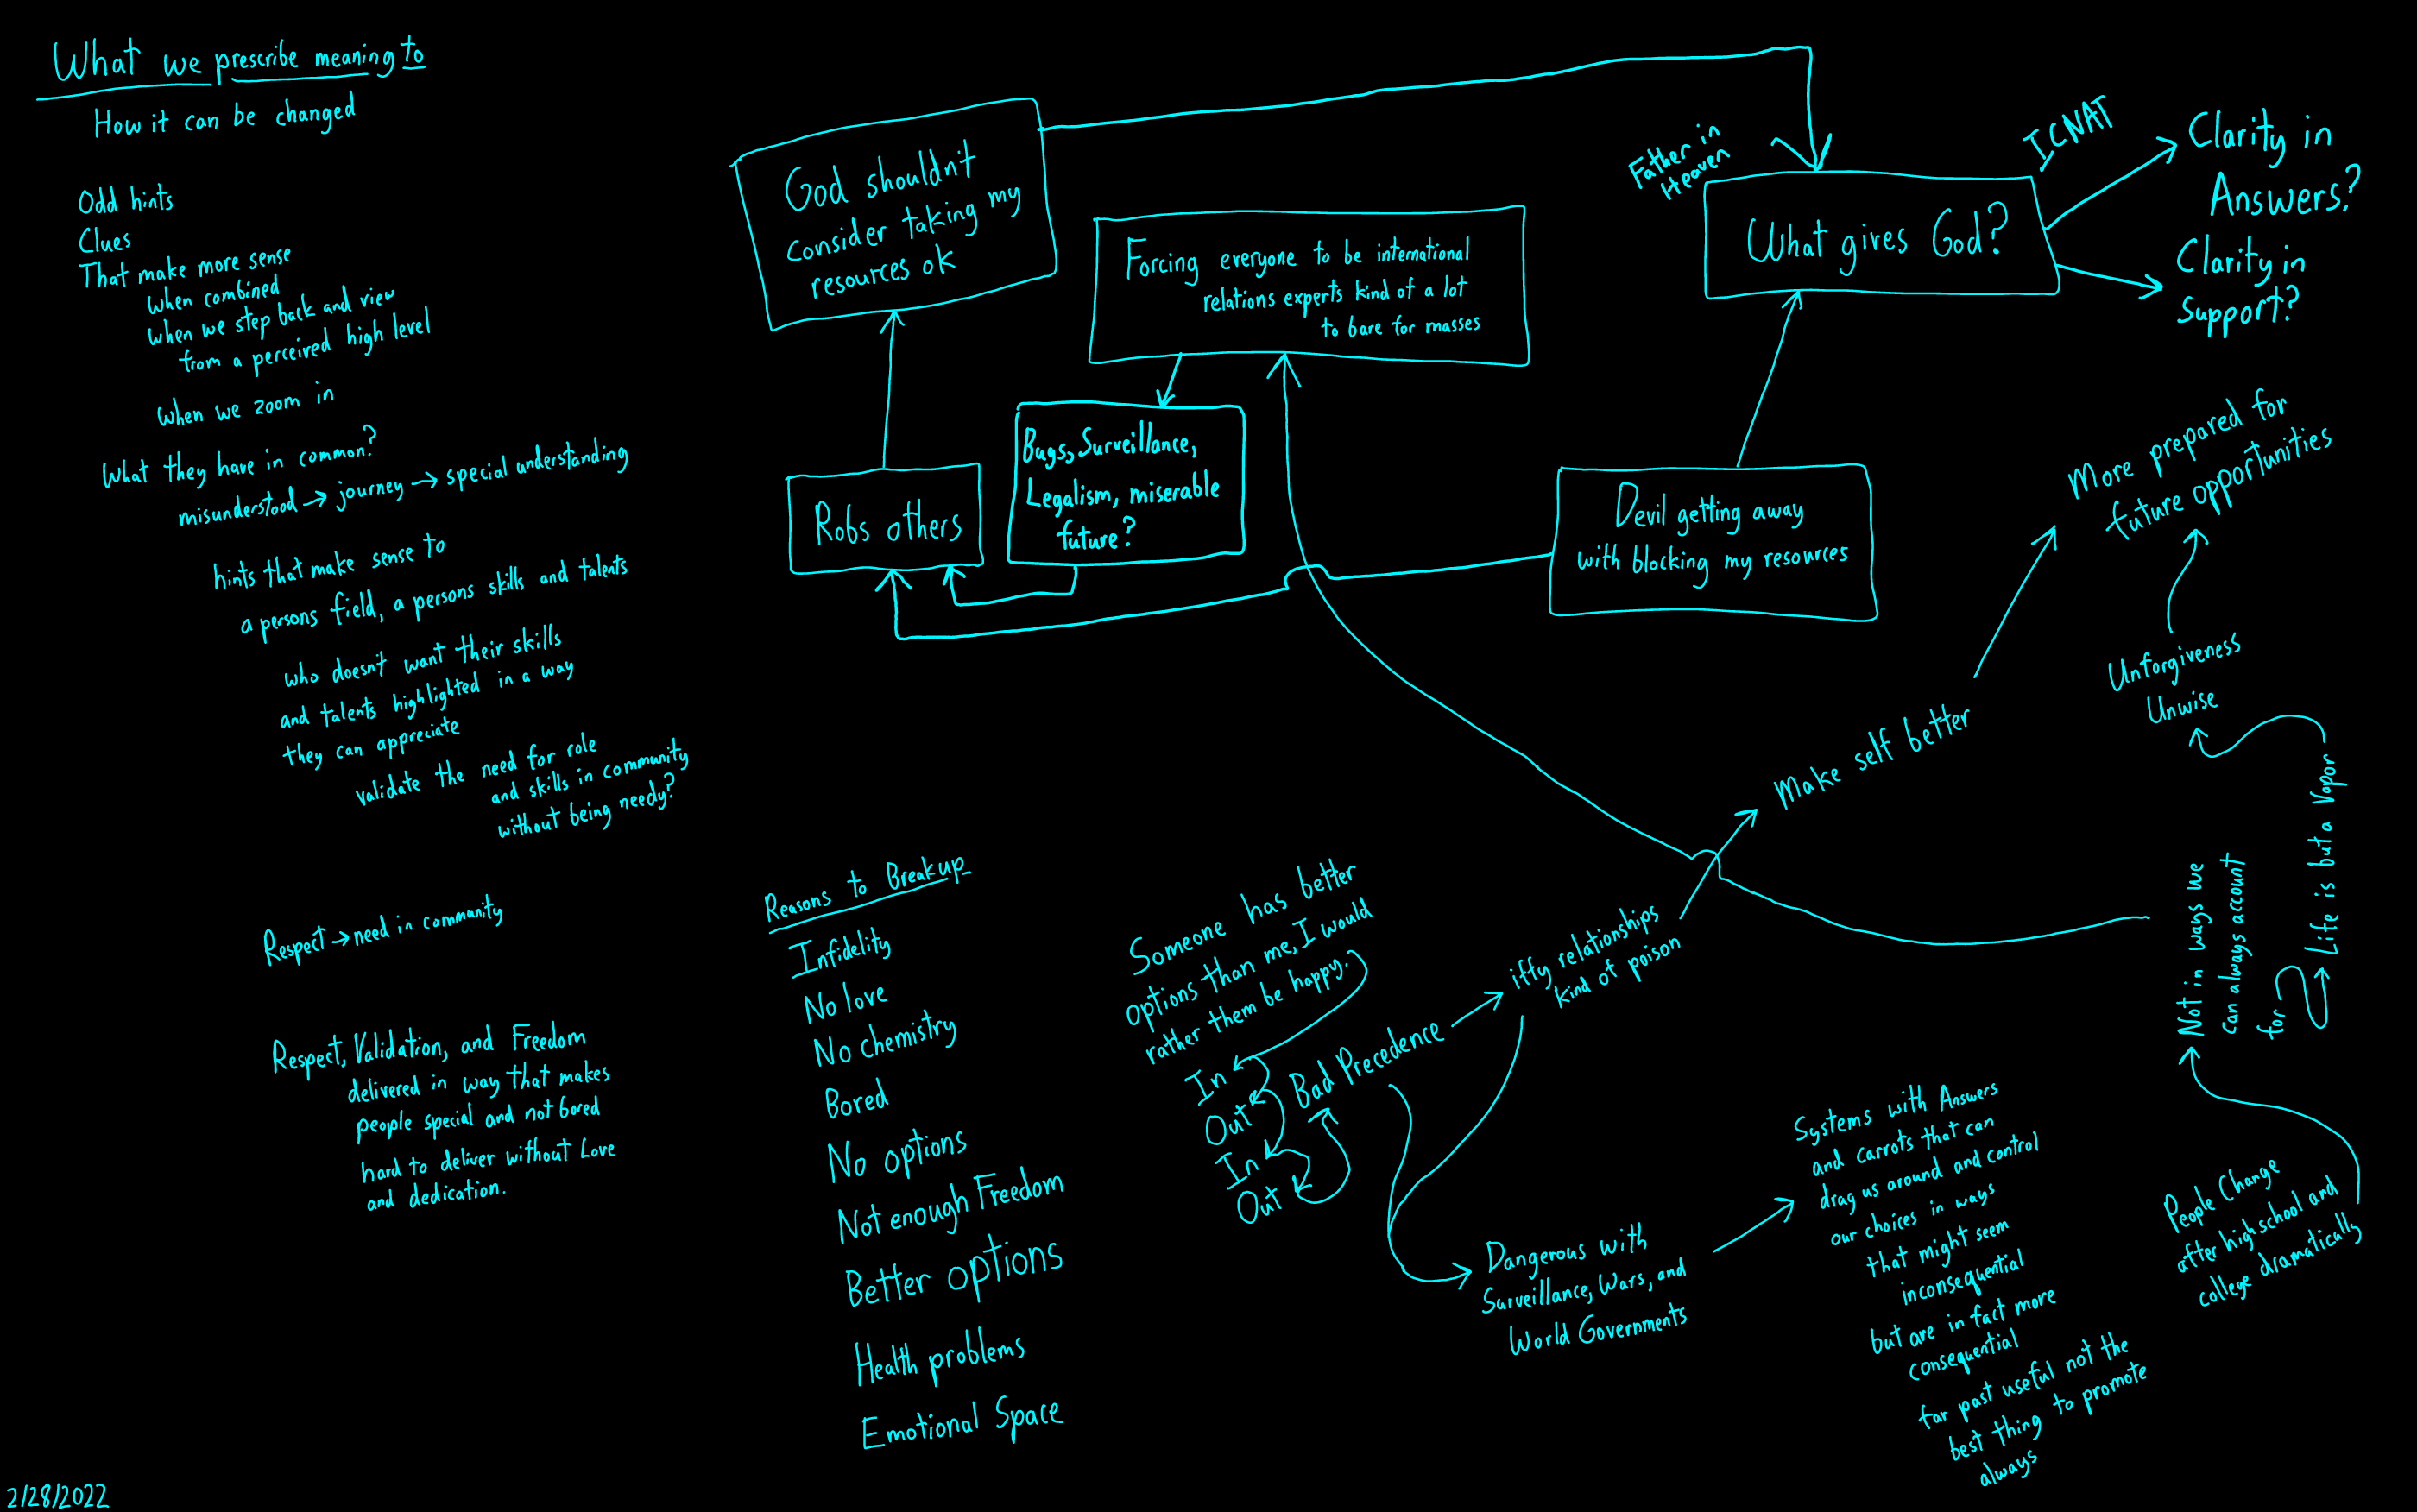 What we prescribe meaning to
How it can be changed
Odd hints
Clues
That make more sense
when combined
when we step back and view
from a perceived high level
when we zoom in
What they have in common?
misunderstood → journey → special understanding
hints that make sense to
a persons field, a persons skills and talents
who doesn't want their skills
and talents highlighted in a way
they can appreciate
validate the need for role
and skills in community
without being needy?
Respect → need in community
Respect, Validation, and Freedom
delivered in way that makes
people special and not bored
hard to deliver without Love
and dedication.
2/28/2022
God shouldn't
consider taking my
resources ok
Forcing everyone to be international
relations experts kind of a lot
to bare for masses
Bugs, Surveillance,
Legalism, miserable
future?
Robs others
Father in
Heaven
ICNAT
What gives God?
Clarity in
Answers?
Clarity in
Support?
Devil getting away
with blocking my resources
Reasons to Breakup
Infidelity
No love
No chemistry
Bored
No options
Not enough Freedom
Better options
Health problems
Emotional Space
Someone has better
options than me, I would
rather them be happy.
In
Out
In
Out
Bad Precedence
iffy relationships
kind of poison
Make self better
More prepared for
future opportunities
Unforgiveness
Unwise
Life is but a Vapor
Not in ways we
can always account
for
People Change
after highschool and
college dramatically
Dangerous with
Surveillance, Wars, and
World Governments
Systems with Answers
and carrots that can
drag us around and control
our choices in ways
that might seem
inconsequential
but are in fact more
consequential
far past useful not the
best thing to promote
always